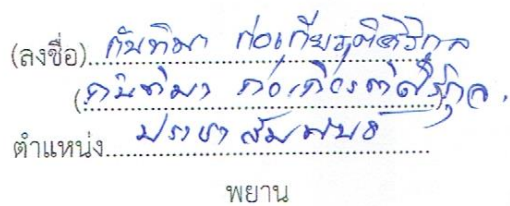 (ลงชื่อ) กันทิมา ก่อเกียรติศิริกุล
(กันทิมา ก่อเกียรติศิริกุล)
ตำแหน่ง ประชาสัมพันธ์
พยาน